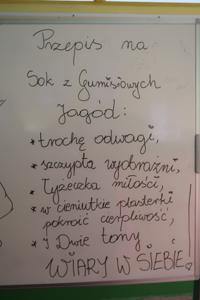 Przepis na
Sok z Gumisiowych
Jagód:
* trochę odwagi,
* szczypta wyobraźni,
* Łyżeczka miłości,
* w cieniutkie plasterki
pokroić cierpliwość,
* I Dwie tony
WIARY W SIEBIE